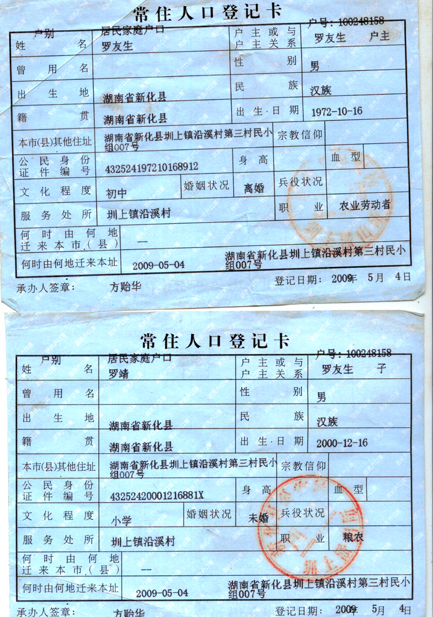 常住人口登记卡
户别 居民家庭户口 户号:100248158
姓名 罗友生 户主或与户主关系 罗友生 户主
曾用名 性别 男
出生地 湖南省新化县 民族 汉族
籍贯 湖南省新化县 出生·日期 1972-10-16
本市(县)其他住址 湖南省新化县圳上镇沿溪村第三村民小组007号 宗教信仰
公民身份证件编号 432524197210168912 身高 血型
文化程度 初中 婚姻状况 离婚 兵役状况
服务处所 圳上镇沿溪村 职业 农业劳动者
何时由何地迁来本市(县) —
何时由何地迁来本址 2009-05-04 湖南省新化县圳上镇沿溪村第三村民小组007号
承办人签章: 方贻华 登记日期: 2009年 5月 4日
常住人口登记卡
户别 居民家庭户口 户号:100248158
姓名 罗靖 户主或与户主关系 罗友生 子
曾用名 性别 男
出生地 湖南省新化县 民族 汉族
籍贯 湖南省新化县 出生·日期 2000-12-16
本市(县)其他住址 湖南省新化县圳上镇沿溪村第三村民小组007号 宗教信仰
公民身份证件编号 43252420001216881X 身高 血型
文化程度 小学 婚姻状况 未婚 兵役状况
服务处所 圳上镇沿溪村 职业 粮农
何时由何地迁来本市(县) —
何时由何地迁来本址 2009-05-04 湖南省新化县圳上镇沿溪村第三村民小组007号
承办人签章: 方贻华 登记日期: 2009年 5月 4日